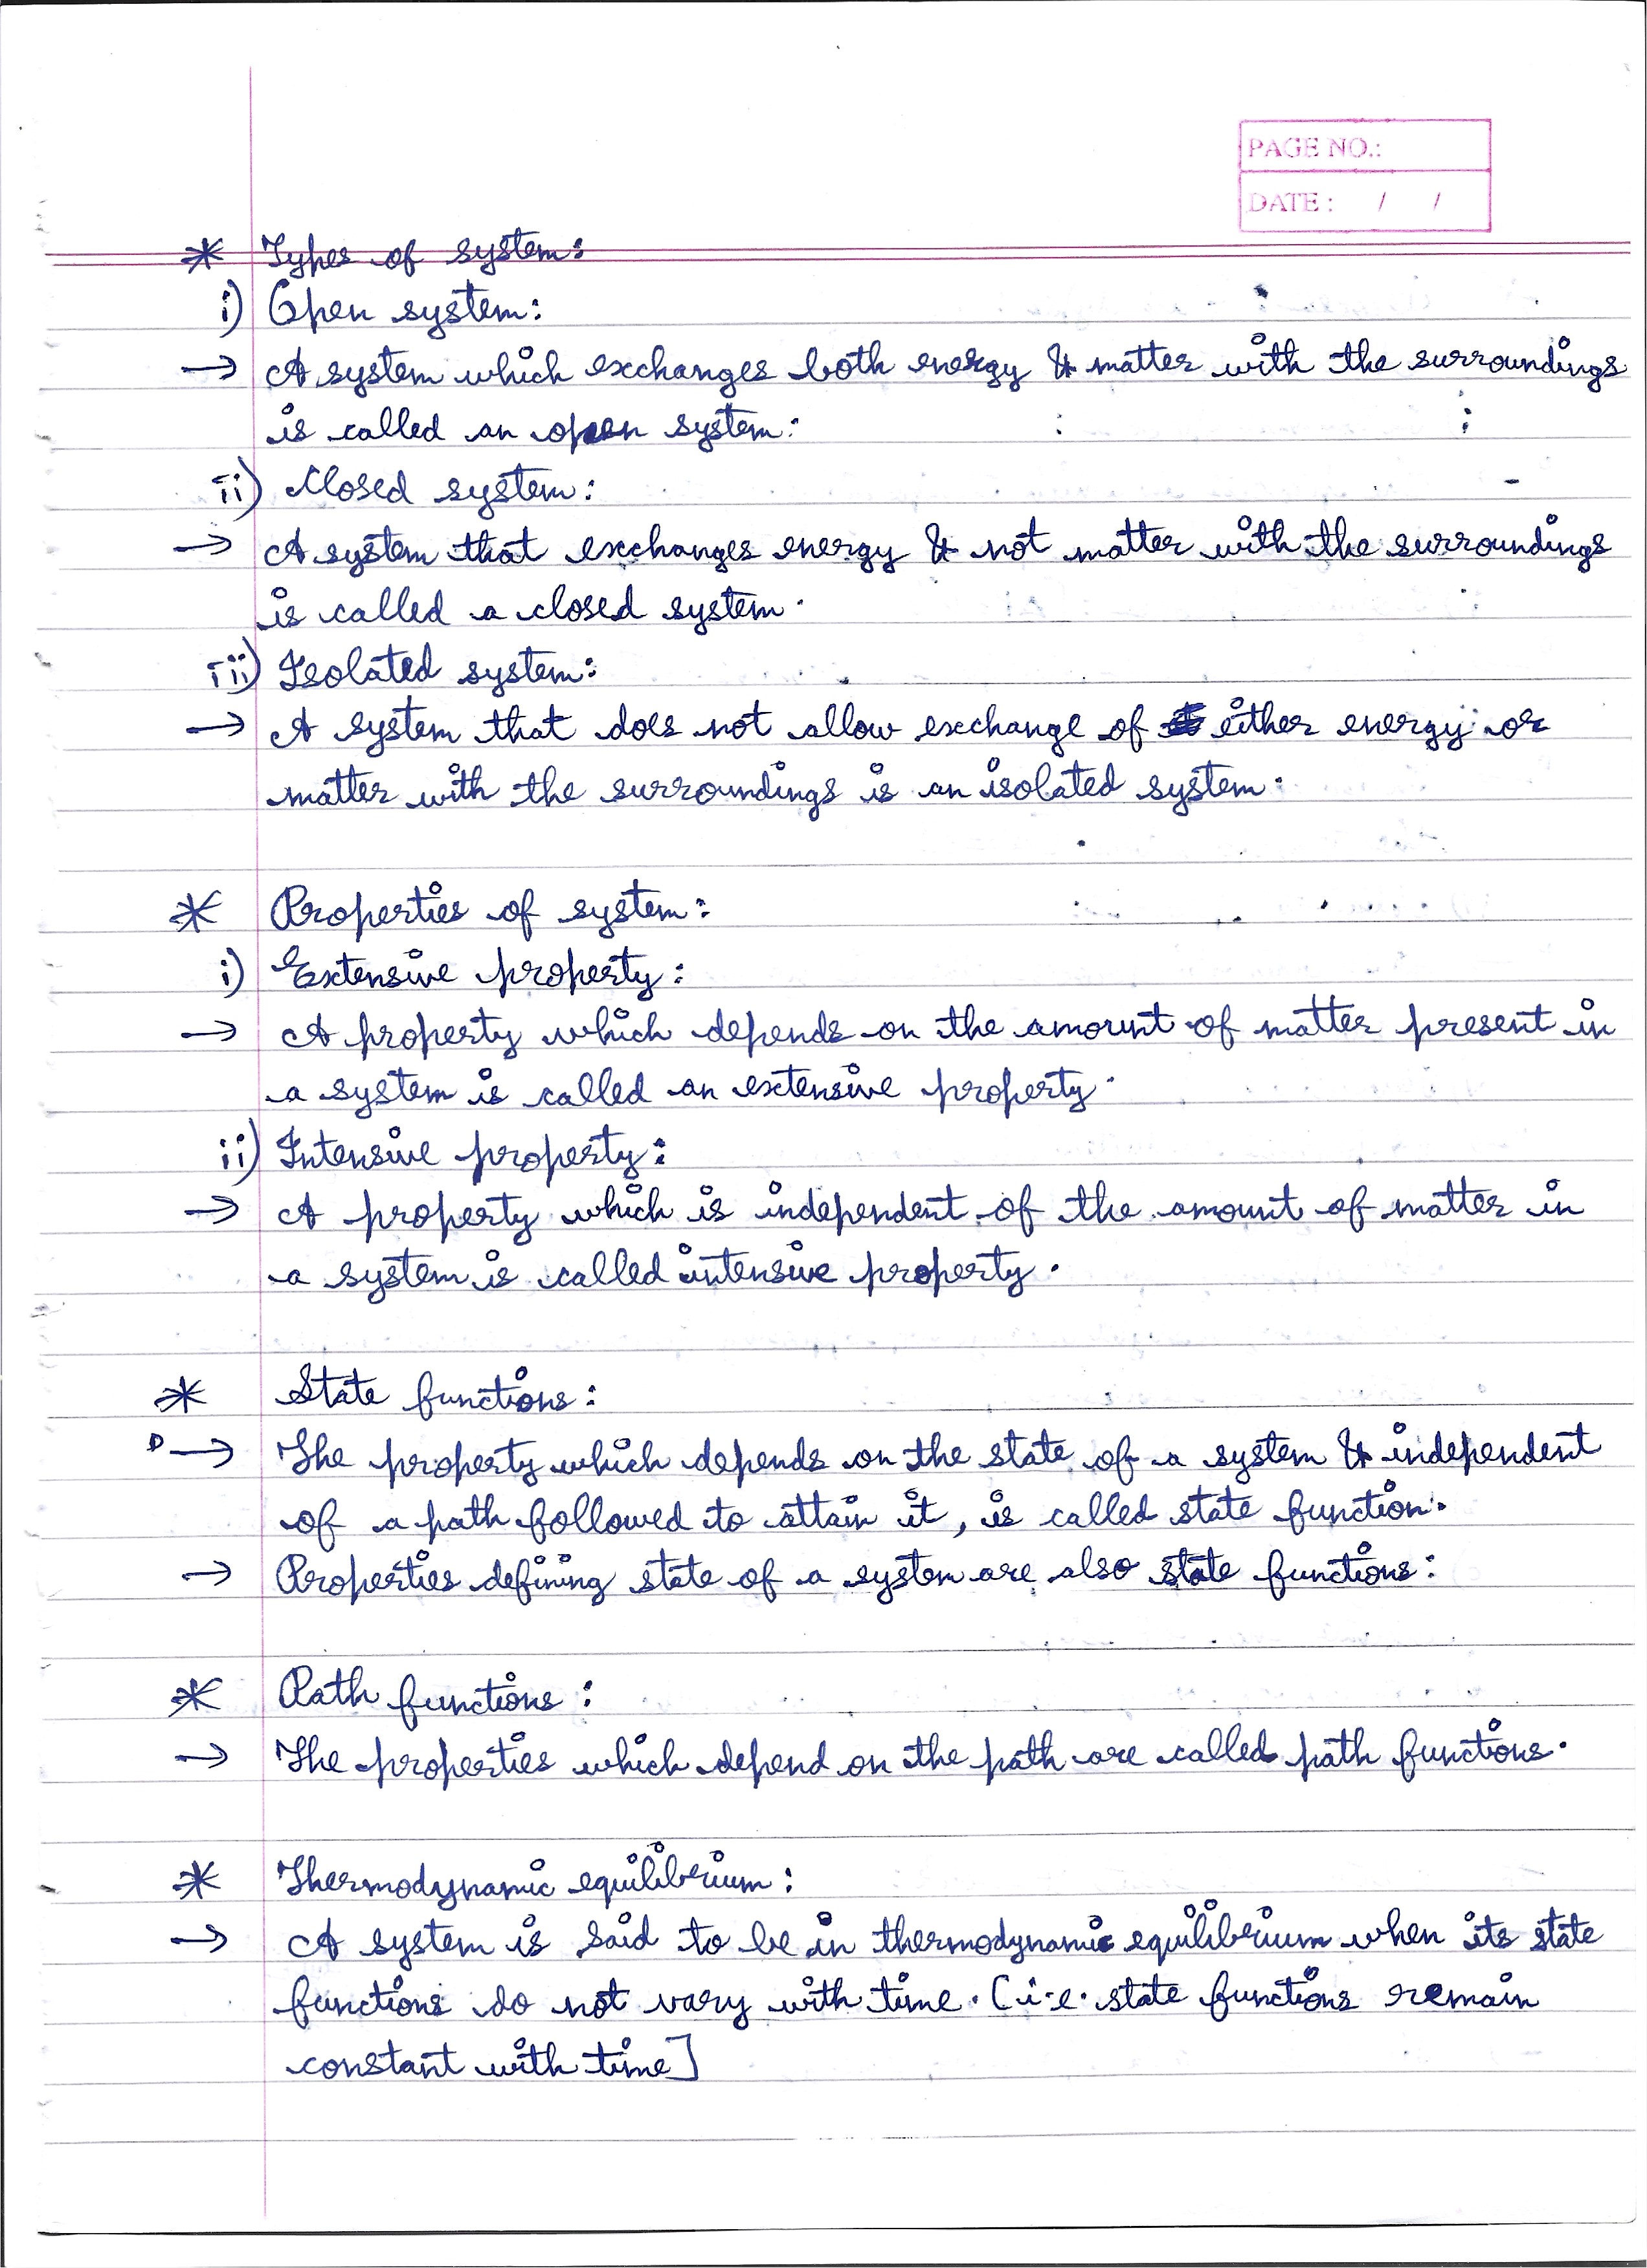 PAGE NO.:
DATE : / /
* Types of system:
i) Open system:
→ A system which exchanges both energy & matter with the surroundings
is called an open system.
ii) Closed system:
→ A system that exchanges energy & not matter with the surroundings
is called a closed system.
iii) Isolated system:
→ A system that does not allow exchange of either energy or
matter with the surroundings is an isolated system.
* Properties of system:
i) Extensive property:
→ A property which depends on the amount of matter present in
a system is called an extensive property.
ii) Intensive property:
→ A property which is independent of the amount of matter in
a system is called intensive property.
* State functions:
→ The property which depends on the state of a system & independent
of a path followed to attain it, is called state function.
→ Properties defining state of a system are also state functions:
* Path functions:
→ The properties which depend on the path are called path functions.
* Thermodynamic equilibrium:
→ A system is said to be in thermodynamic equilibrium when its state
functions do not vary with time. [i.e. state functions remain
constant with time]